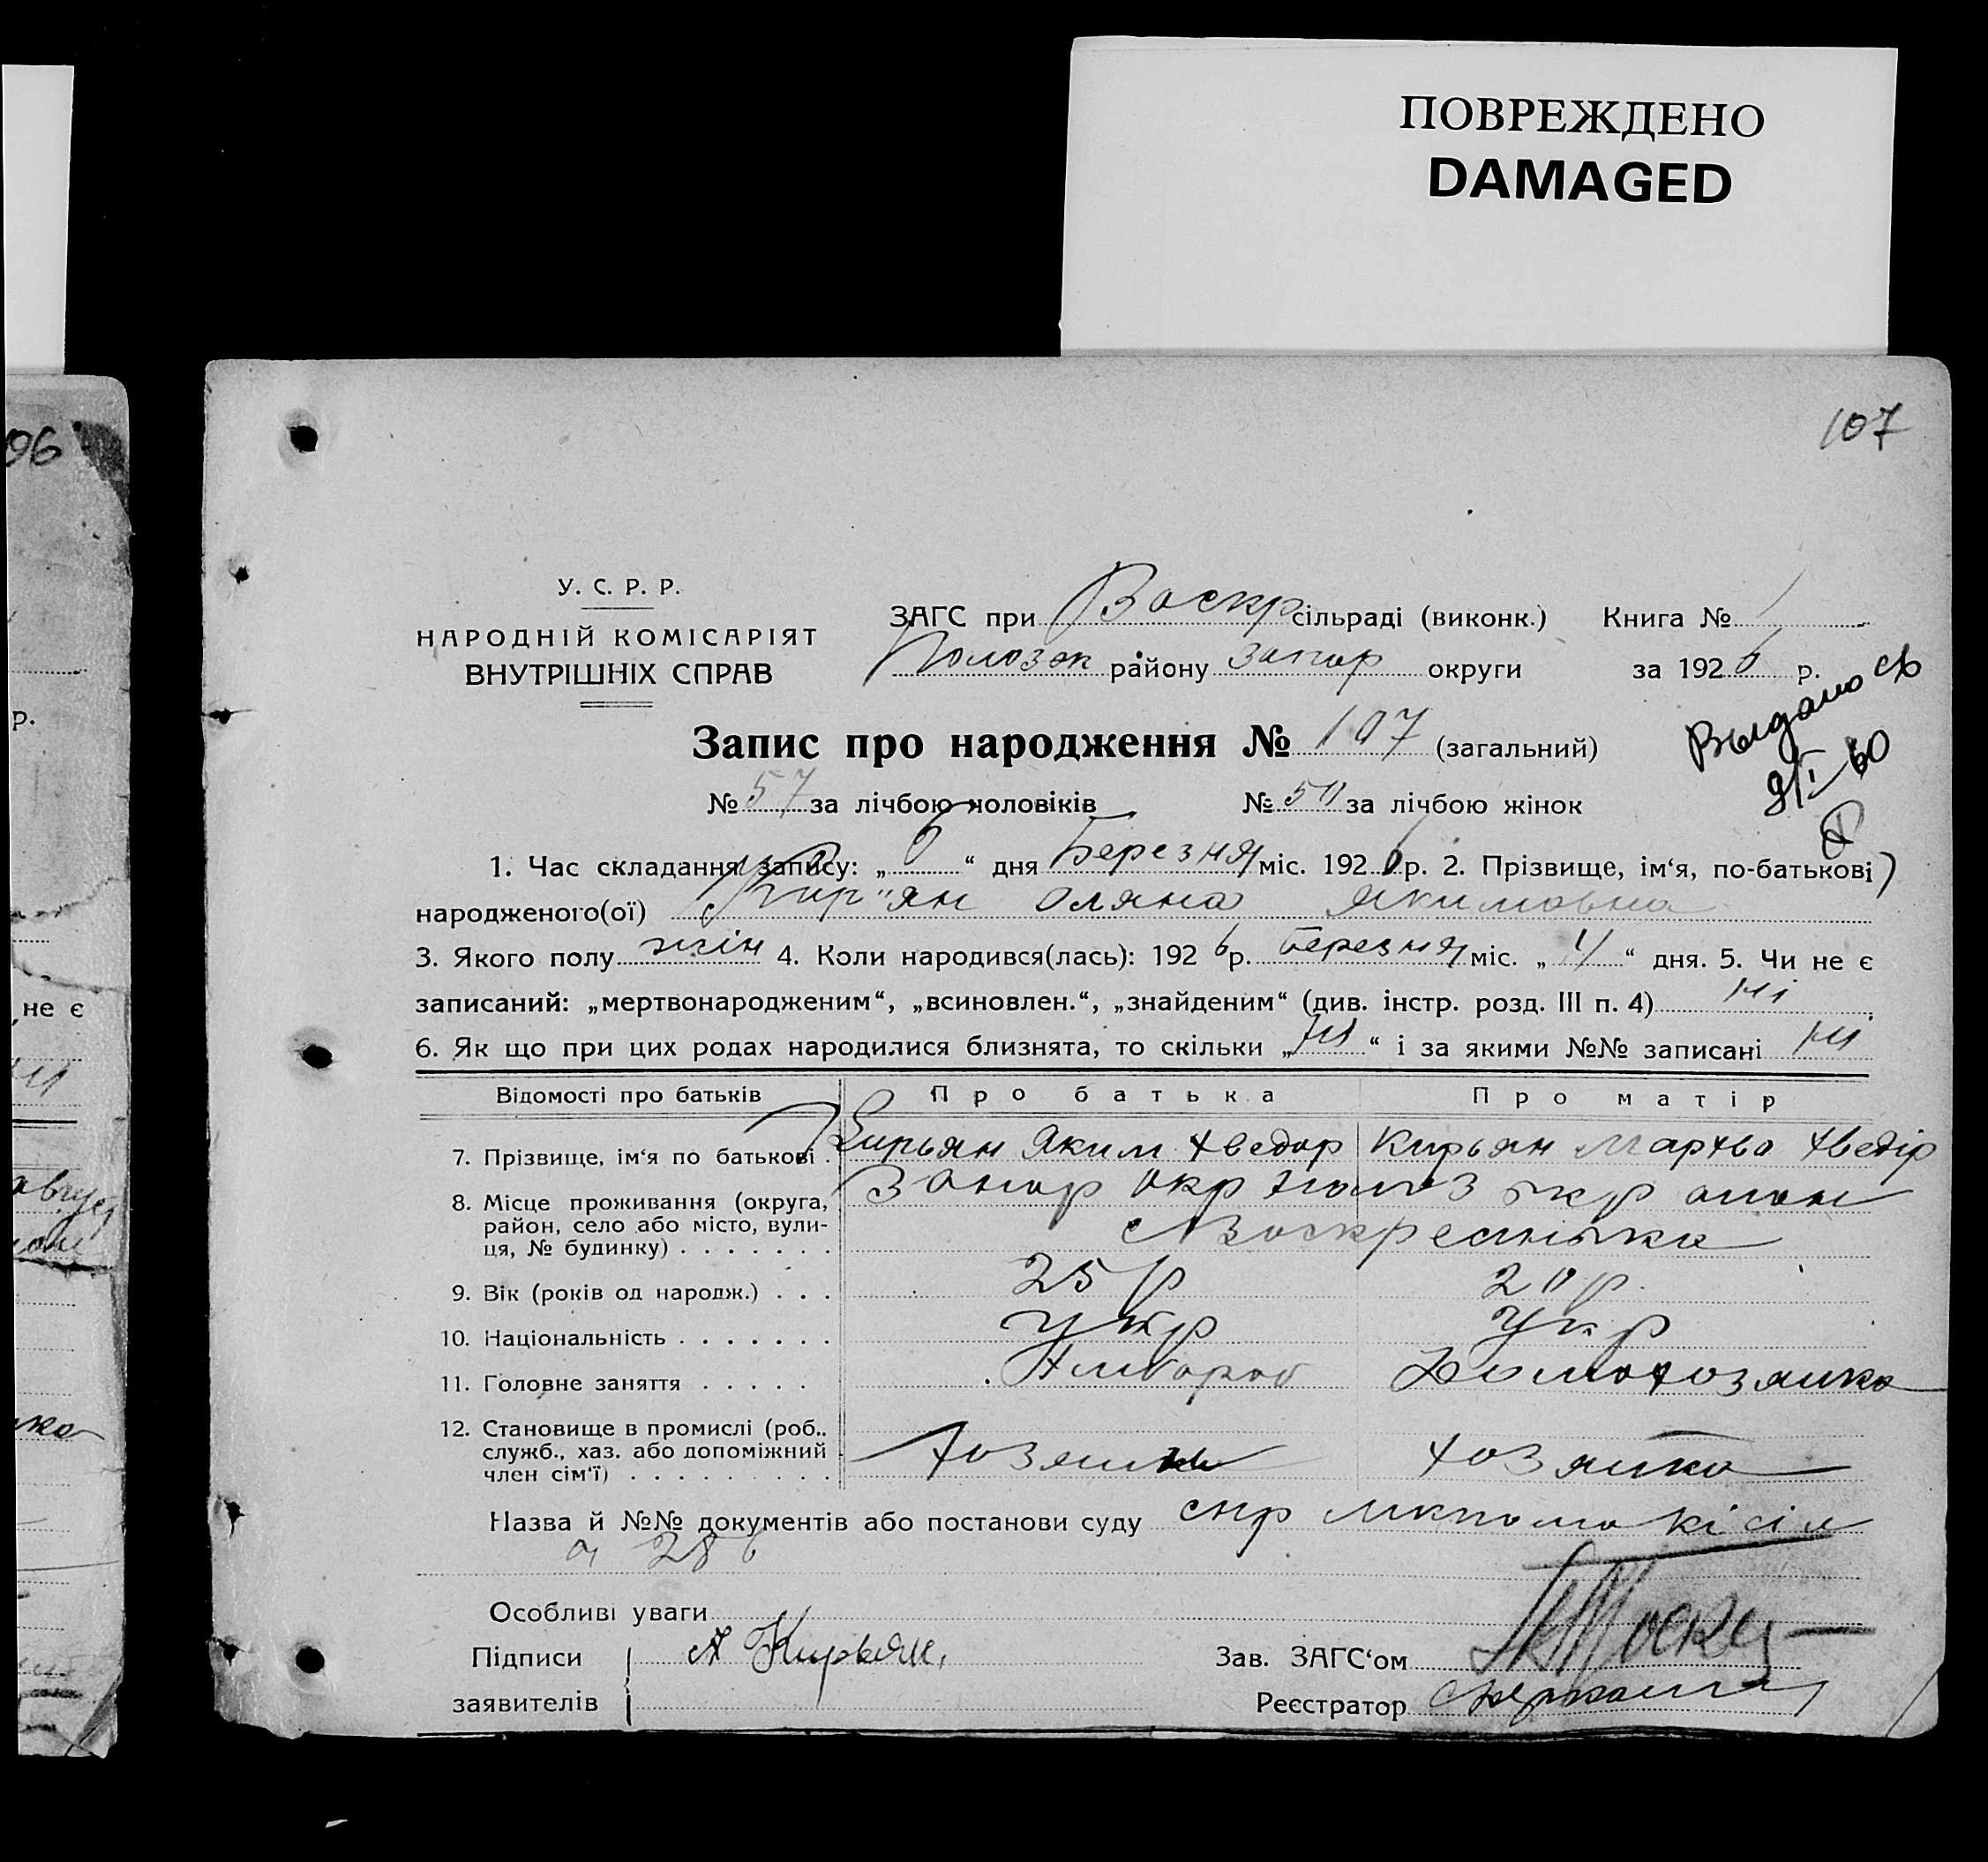 ПОВРЕЖДЕНО
DAMAGED
107
96
У. С. Р. Р.
НАРОДНІЙ КОМІСАРІЯТ
ВНУТРІШНІХ СПРАВ
ЗАГС при Воскр сільраді (виконк.) Книга № 1
Пологзк району Запор округи за 1926 р.
Выдано св
Запис про народження № 107 (загальний)
№ 57 за лічбою чоловіків № 50 за лічбою жінок
1. Час складання запису: „ 6 “ дня Березня міс. 1926 р. 2. Прізвище, ім‘я, по-батькові
народженого(ої) Кир"ян Оляна Якимовна
3. Якого полу жін 4. Коли народився(лась): 1926 р. березня міс. „ 4 “ дня. 5. Чи не є
записаний: „мертвонародженим“, „всиновлен.“, „знайденим“ (див. інстр. розд. III п. 4) ні
6. Як що при цих родах народилися близнята, то скільки „ ні “ і за якими №№ записані ні
Відомості про батьків Про батька Про матір
7. Прізвище, ім‘я по батькові . Кирьян Яким Хведор Кирьян Мархва Хведір
8. Місце проживання (округа, район, село або місто, вулиця, № будинку) . . . . . . . Запор Окр
с Воскресенька
9. Вік (років од народж.) . . . 25 р 20 р.
10. Національність . . . . . . . Укр Укр
11. Головне заняття . . . . . Хлібороб Домохозяика
12. Становище в промислі (роб.. служб., хаз. або допоміжний член сім‘ї) . . . . . . . . . Хозяин хозяика
Назва й №№ документів або постанови суду
Особливі уваги
Підписи заявителів А Кирьян.
Зав. ЗАГС‘ом
Реєстратор